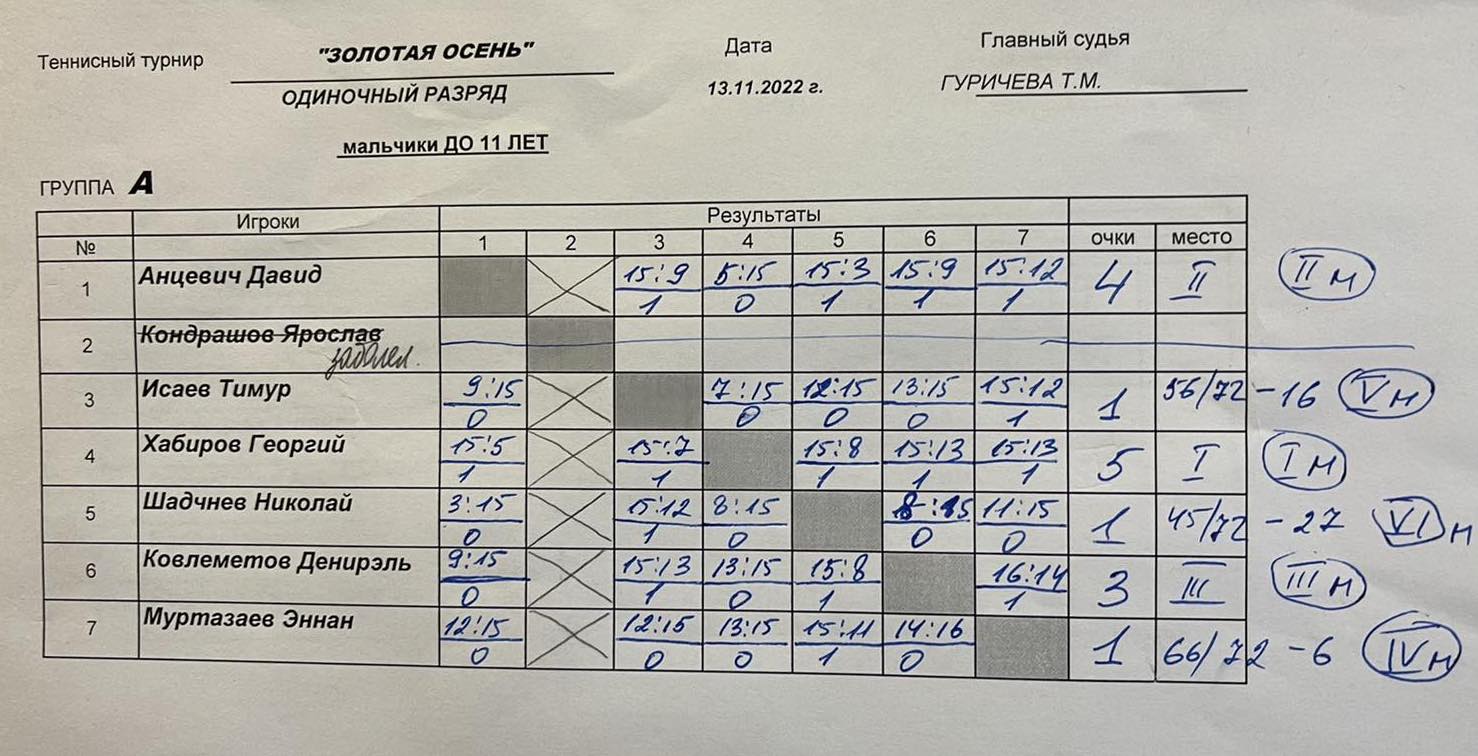 Теннисный турнир "ЗОЛОТАЯ ОСЕНЬ" Дата Главный судья
ОДИНОЧНЫЙ РАЗРЯД 13.11.2022 г. ГУРИЧЕВА Т.М.
мальчики ДО 11 ЛЕТ
ГРУППА А
Игроки Результаты
№ 1 2 3 4 5 6 7 очки место
1 Анцевич Давид 15:9 5:15 15:3 15:9 15:12 4 II II м
1 0 1 1 1
2 Кондрашов Ярослав
заболел.
3 Исаев Тимур 9:15 7:15 12:15 13:15 15:12 1 56/72 -16 V м
0 0 0 0 1
4 Хабиров Георгий 15:5 15:7 15:8 15:13 15:13 5 I I м
1 1 1 1 1
5 Шадчнев Николай 3:15 15:12 8:15 8:15 11:15 1 45/72 -27 VI м
0 1 0 0 0
6 Ковлеметов Денирэль 9:15 15:13 13:15 15:8 16:14 3 III III м
0 1 0 1 1
7 Муртазаев Эннан 12:15 12:15 13:15 15:11 14:16 1 66/72 -6 IV м
0 0 0 1 0